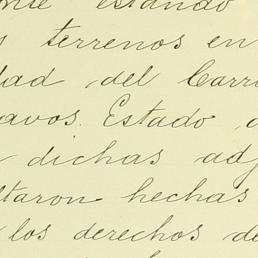 estando
terrenos en
dad del Carri
avos. Estado
dichas adj
ltaron hechas
los derechos de